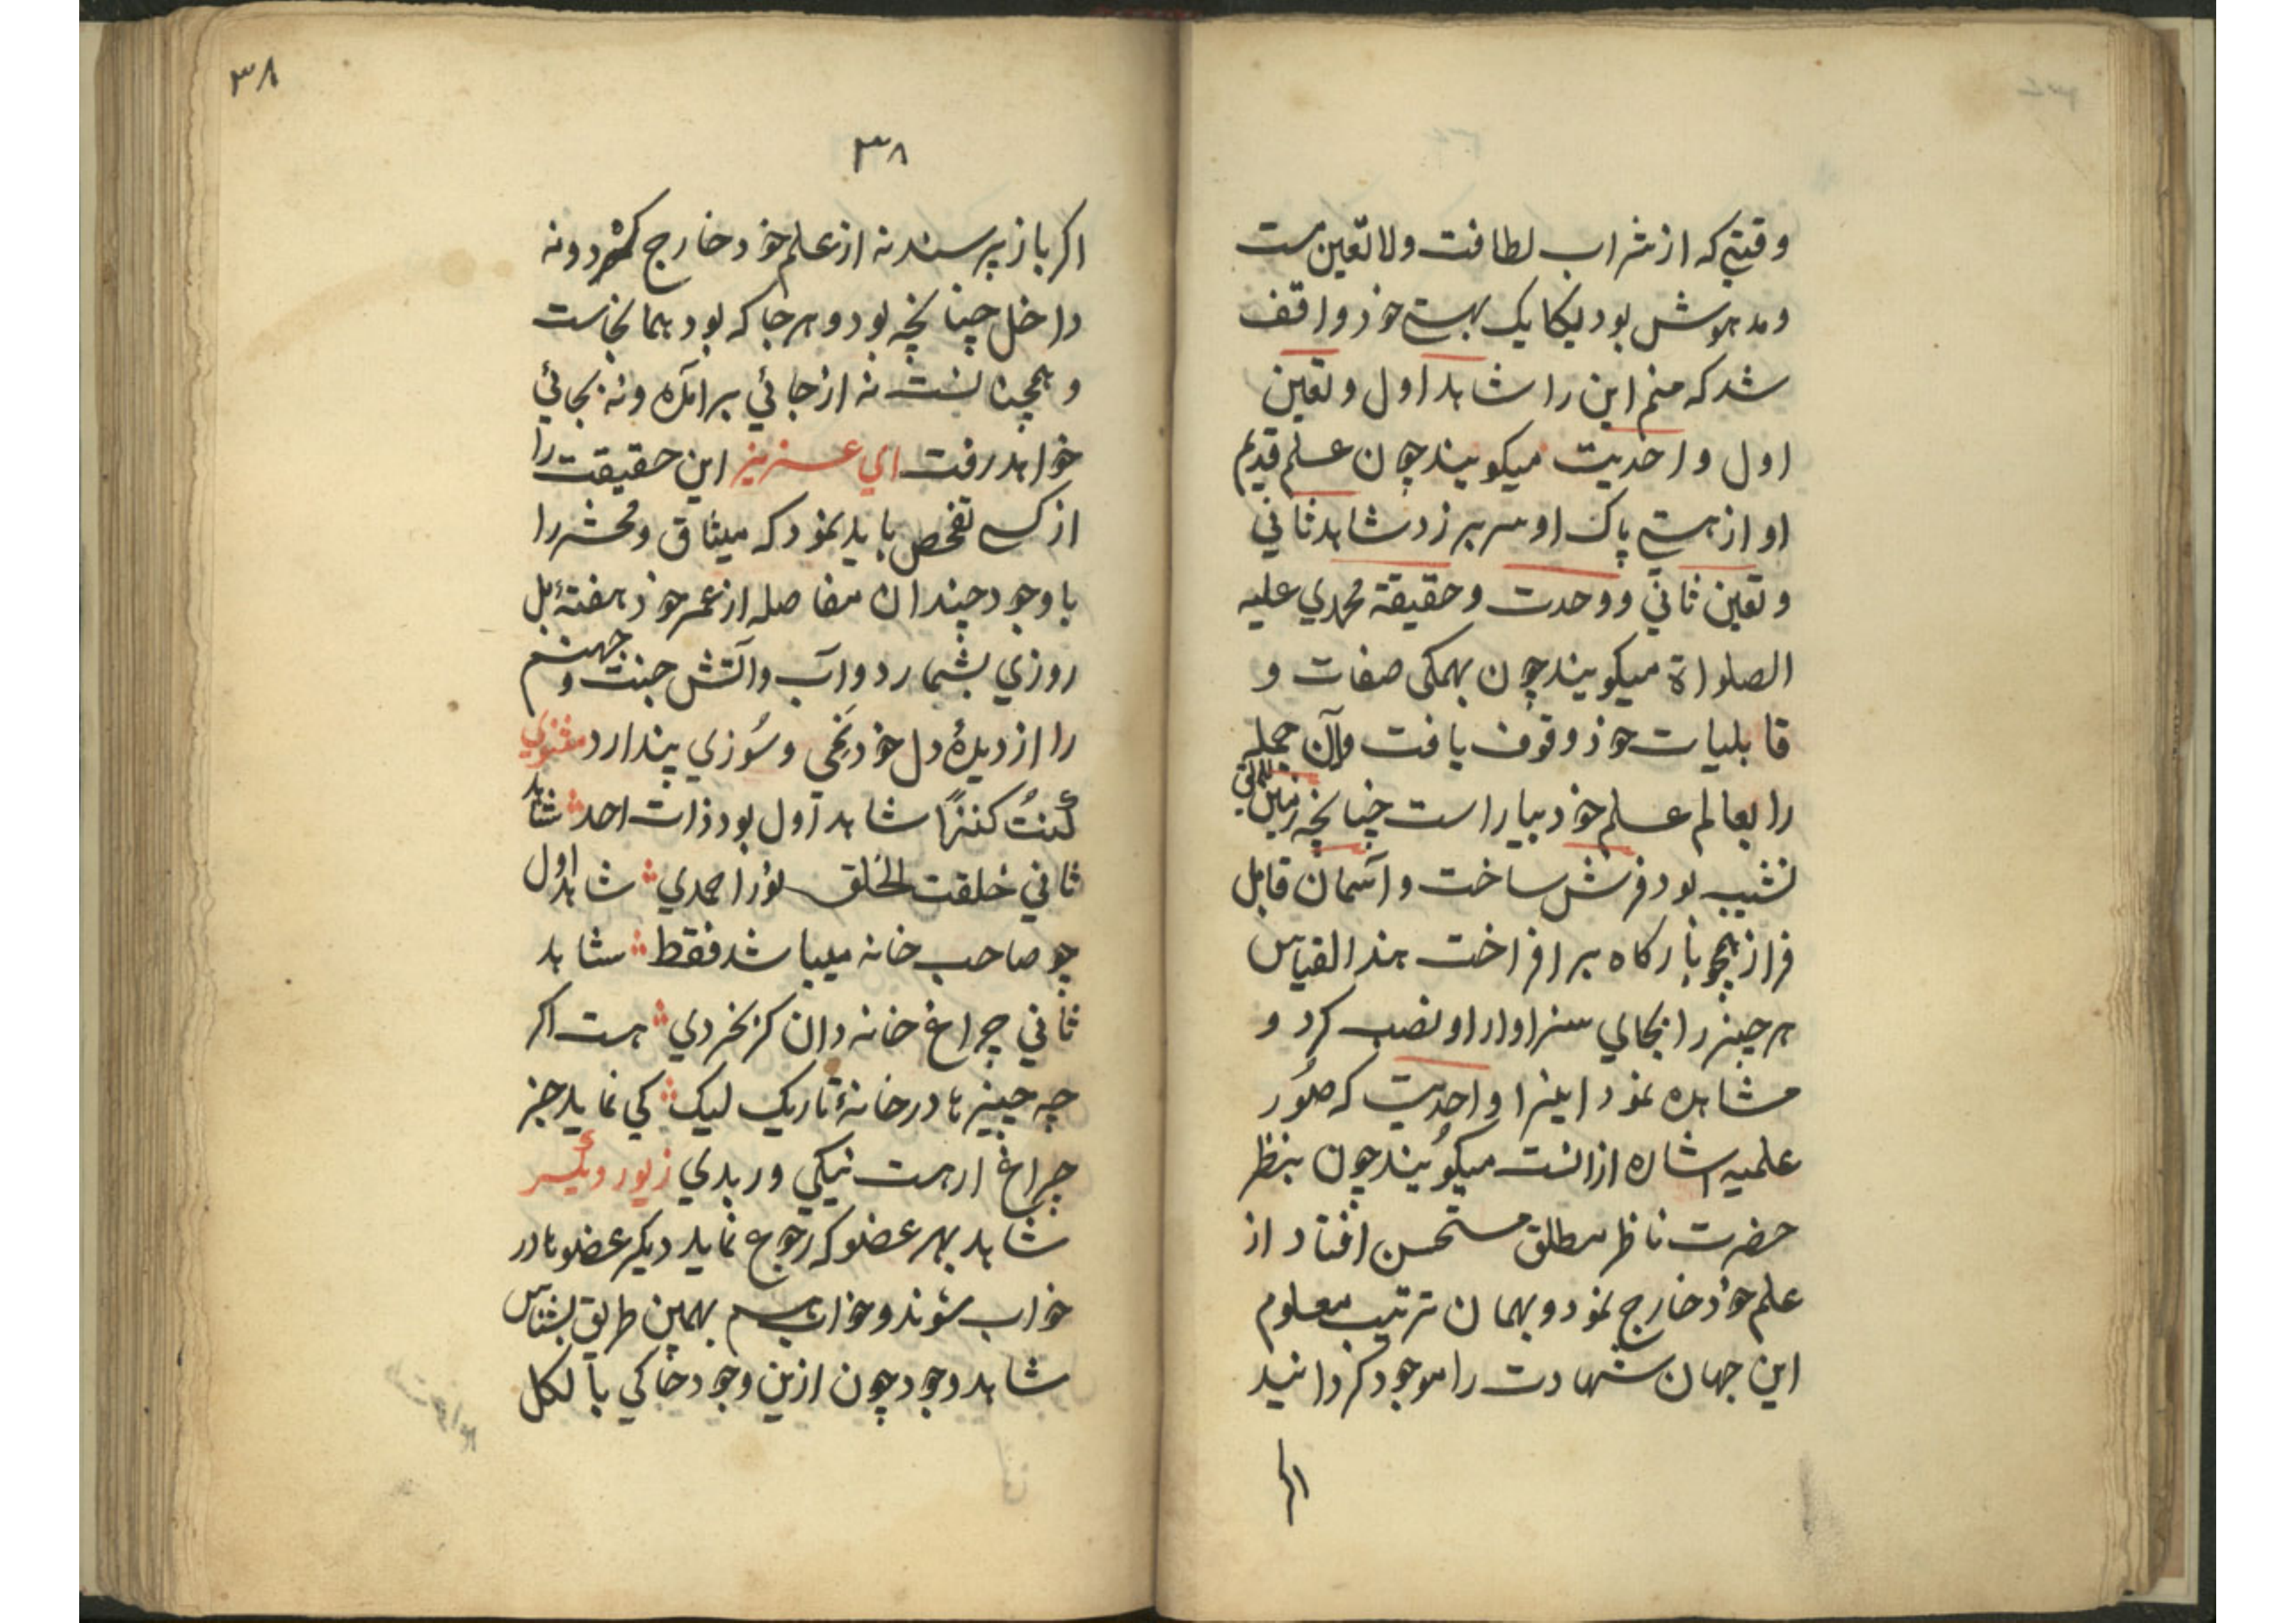 وقتیکه از شراب لطافت ولا تعین مست
و مدهوش بود یکایک بهستی خود واقف
شد که منم این را شاهد اول و تعین
اول و احدیت میکویند چون علم قدیم
او از هستی پاک او سر بر زد شاهد ثانی
و تعین ثانی و وحدت و حقیقة محمدي علیه
الصلواة میکویند چون بهمکی صفات و
قابلیات خود وقوف یافت و آن جمله
را بعالم علم خود بیاراست چنانچه زمین لایق
نشیب بود فرش ساخت و آسمان قابل
فراز همچو بارکاه بر افراخت هذا القیاس
هر چیز را بجاي سزاوار او نصب کرد و
مشاهده نمود اینرا واحدیت که صُوَر
علمیه اشاره ازانست میکویند چون بنظر
حضرت ناظر مطلق مستحسن افتاد از
علم خود خارج نمود و بهمان ترتیب معلوم
این جهان شهادت را موجود کردانید
اکر
٣٨
٣٨
اکر باز پرسند نه از علم خود خارج کرد و نه
داخل چنانچه بود و هر جا که بود همانجاست
و همچنانست نه از جائي برآمده و نه بجائي
خواهد رفت اي عزیز این حقیقت را
از کسے تفحص باید نمود که میثاق و محشر را
با وجود چندان مفاصله از عمر خود هفتهٔ بل
روزي بشمارد و آب و آتش جنت و جهنم
را از دیدهٔ دل خود نَمي و سُوزي پندارد مثنوي
کُنتُ کنزًا شاهد اول بود ذات احد شاهد
ثاني خلقت الخلق نور احمدي شاهد اول
چو صاحب خانه میباشد فقط شاهد
ثاني چراغ خانه دان کز بخردي هست اکر
چه چیزها در خانهٔ تاریک لیک کي نماید جز
چراغ ار هست نیکي ور بدي زیور دیگر
شاهد بهر عضو که رجوع نماید دیکر عضوها در
خواب شوند و خواب هم بهمین طریق بشناس
شاهد وجود چون ازین وجود خاکي بالکل